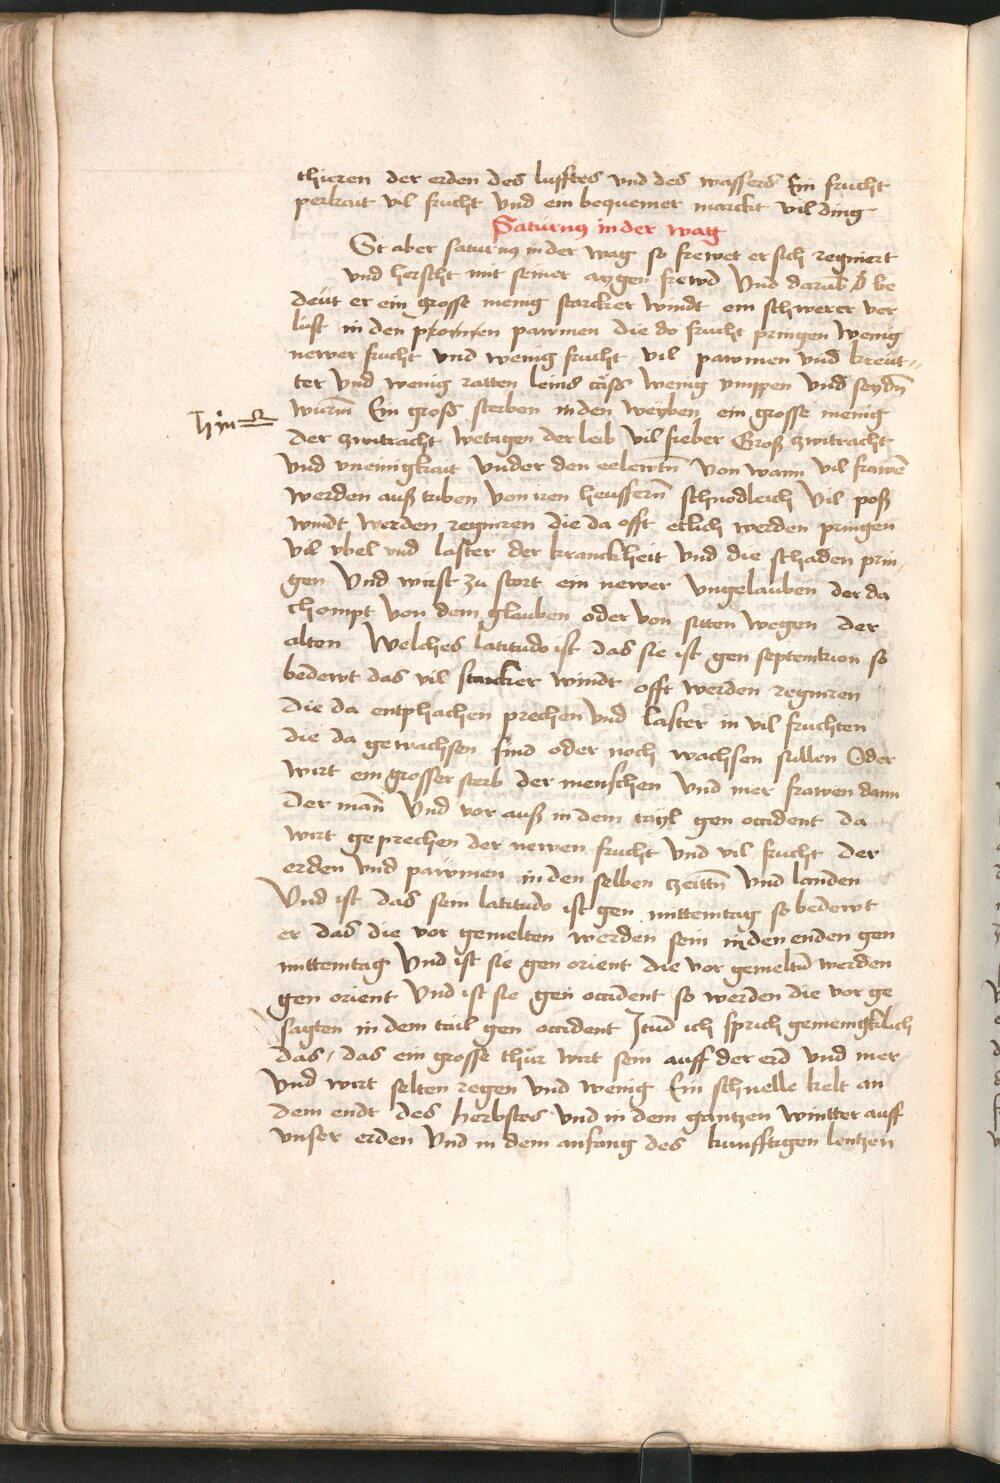 thieren der erden des lufftes vnd des wassers Ein frucht
perkait vil frucht vnd ein bequemer marckt vil ding
Saturnus in der wag
St aber saturnus in der wag so frewet er sich regniert
vnd herscht mit seiner aygen frewd Vnd darub be
deut er ein grosse menig starcker windt ein schwerer ver
lust in den pawmen die do frucht pringen wenig
newer frucht vnd wenig frucht vil pawmen vnd kreut
ter vnd wenig ratten leins cäss wenig ymppen vnd seydn
wurm Ein groß sterben in den weyben ein grosse menig
♄ in ♎
der zwitracht wetagen der leib vil fieber Groß zwitracht
vnd vneinigkait vnder den eelewtn von wann vil frawē
werden auß triben von iren heussern schnodleich vil poß
windt werden regniren die da offt etlich werden pringen
vil vbel vnd laster der kranckheit vnd die schaden prin
gen Vnd wirst zu stort ein newer vngelauben der da
chompt von dem glauben oder von sitten wegen der
alten Welches latitudo ist das sie ist gen septemtrion so
bedewt das vil starcker windt offt werden regniren
die da entphachen prechen vnd laster in vil fruchten
die da gewachsen sind oder noch wachsen sullen Oder
wirt ein grosser sterb der menschen vnd mer frawen dann
der man Vnd vor auß in dem tayl gen occident da
wirt geprechen der newen frucht vnd vil frucht der
erden vnd pawmen in den selben zeittn vnd landen
Vnd ist das sein latitudo ist gen mittemtag so bedewt
er das die vor gemelten werden sein in den enden gen
mittemtag Vnd ist sie gen orient die vor gemeltn werden
gen orient Vnd ist sie gen occident so werden die vor ge
sagten in dem tail gen occident Itud ich sprich gemeingklich
das, das ein grosse thür wirt sein auff der erd vnd mer
vnd wirt selten regen vnd wenig Ein schnelle kelt an
dem endt des herbstes vnd in dem gantzen wintter auff
vnser erden Vnd in dem anfang des kunfftigen lentzen